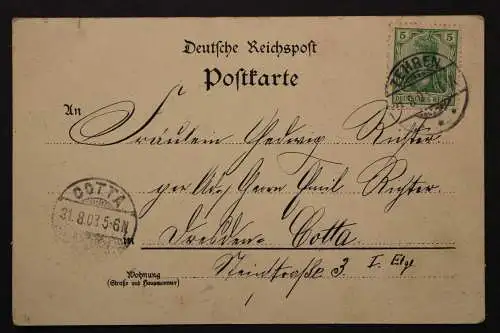 Deutsche Reichspost
Postkarte
5 5
ZEHREN
An
Fräulein Hedwig Richter
per Adr. Herrn Emil Richter
COTTA
31.8.03 5-6N
in
Dresden-Cotta
Steinstraße 3 I. Etg.
Wohnung
(Straße und Hausnummer)